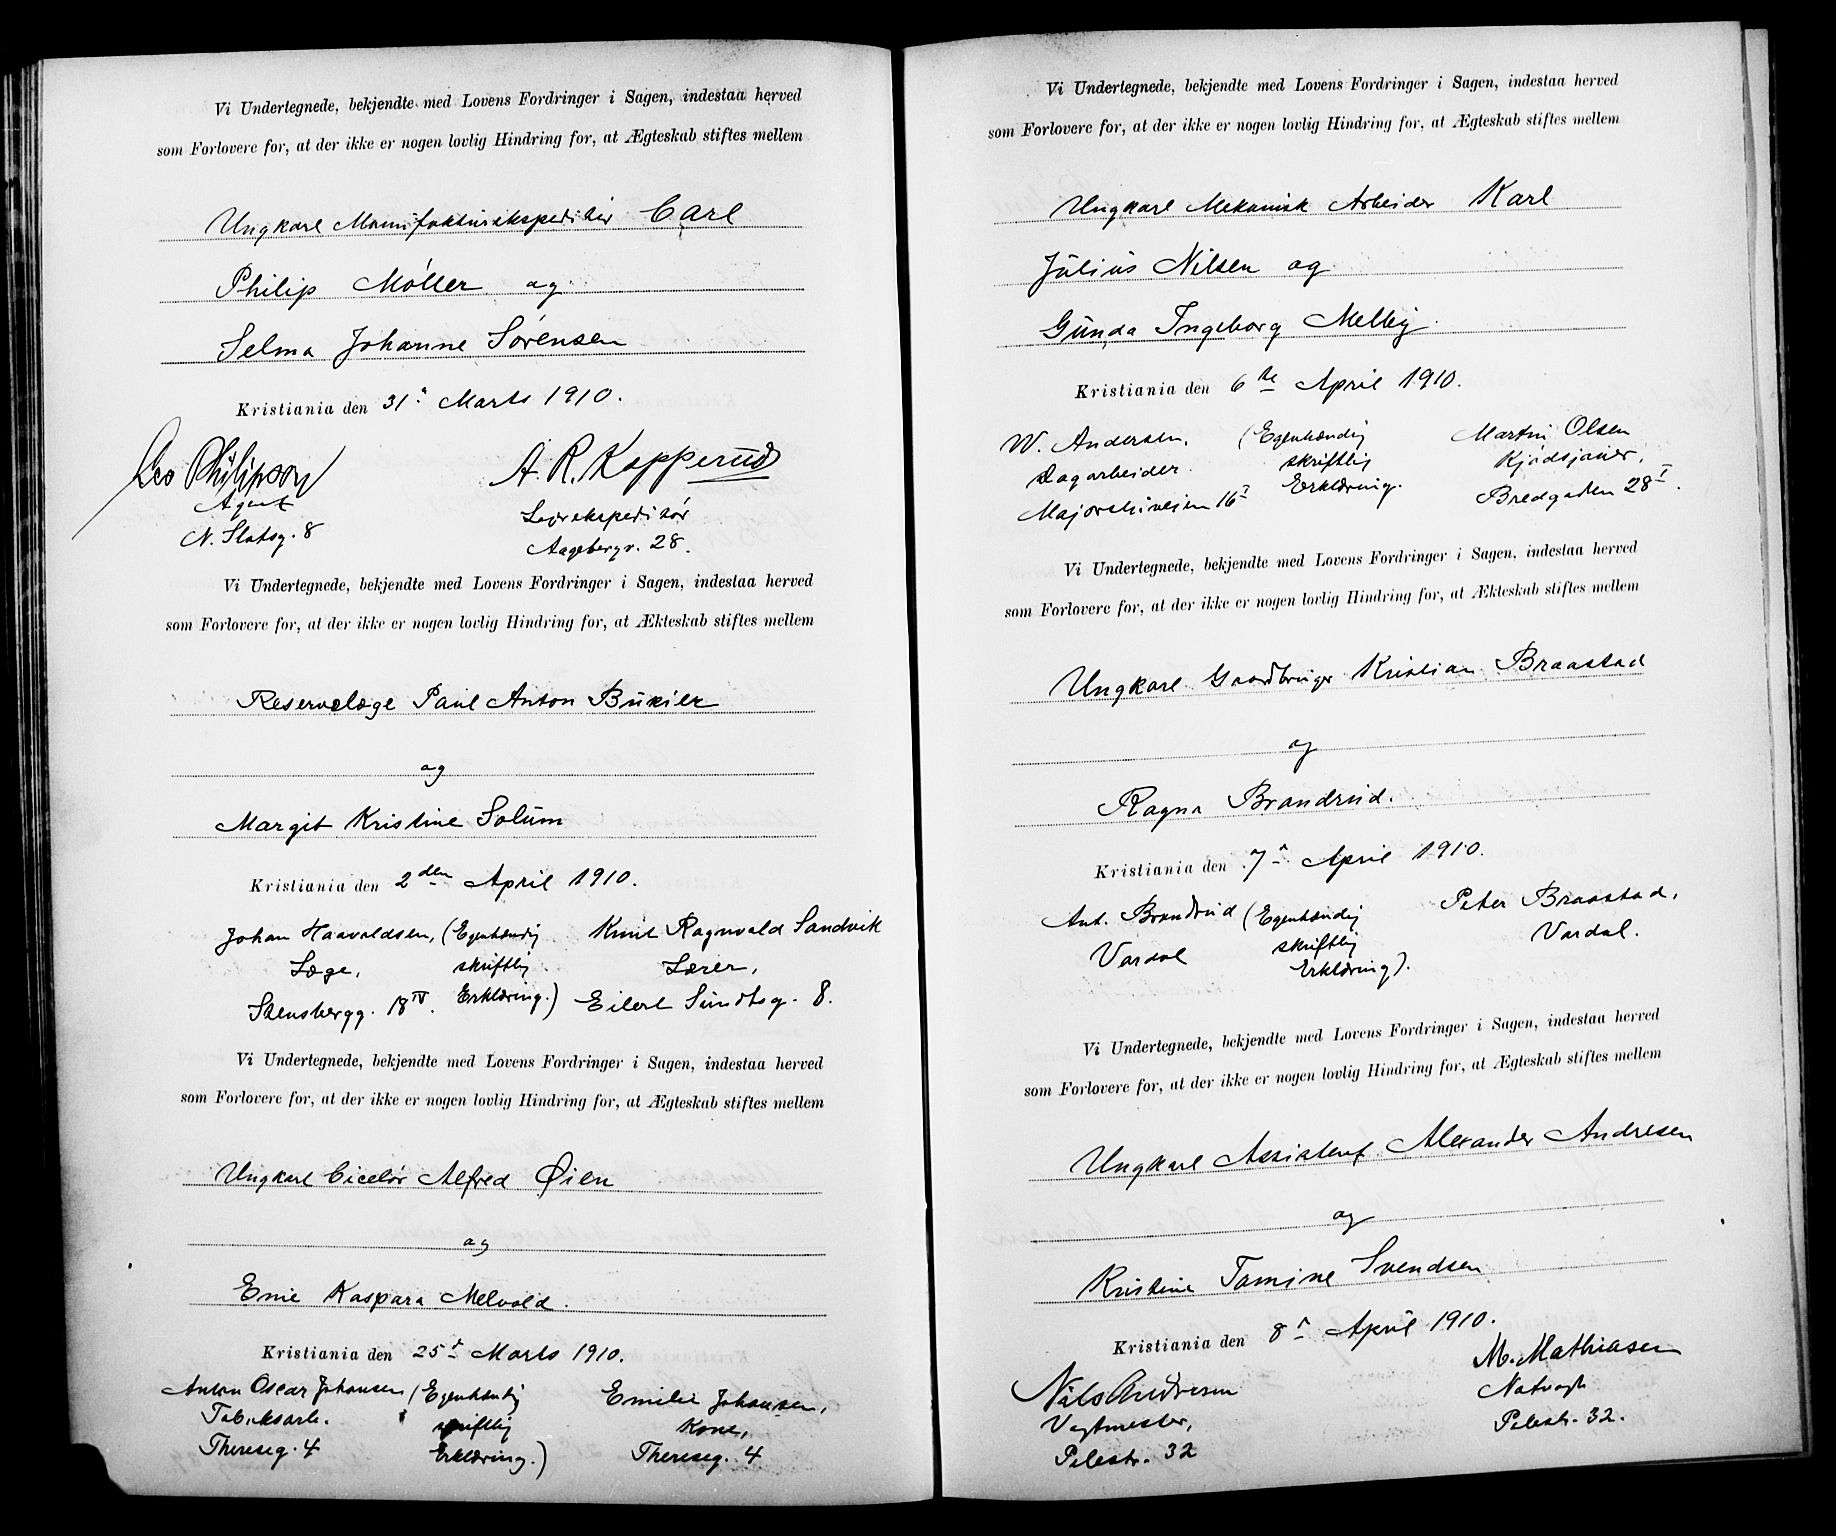 Vi Undertegnede, bekjendte med Lovens Fordringer i Sagen, indestaa herved
som Forlovere for, at der ikke er nogen lovlig Hindring for, at Ægteskab stiftes mellem
Ungkarl Manufakturekspeditør Carl
Philip Møller og
Selma Johanne Sørensen
Kristiania den 31' Marts 1910.
Leo Philipson A. R. Kopperud
Agent
N. Slotsg. 8 Aagebergv. 28.
Vi Undertegnede, bekjendte med Lovens Fordringer i Sagen, indestaa herved
som Forlovere for, at der ikke er nogen lovlig Hindring for, at Ækteskab stiftes mellem
Reservelæge Paul Anton Bukier
og
Margit Kristine Solum
Kristiania den 2den April 1910.
Johan Haavaldsen, (Egenhændig Knut Ragnvald Sandvik
Læge, skriftlig Lærer,
Stensbergg. 18 IV. Erklæring.) Eilert Sundtsg. 8.
Vi Undertegnede, bekjendte med Lovens Fordringer i Sagen, indestaa herved
som Forlovere for, at der ikke er nogen lovlig Hindring for, at Ægteskab stiftes mellem
Ungkarl Cicelør Alfred Øien
og
Enie Kaspara Melvold.
Kristiania den 25' Marts 1910.
Anton Oscar Johansen (Egenhændig Emilie Johansen,
Fabriksarb. skriftlig Kone,
Thereseg. 4 Erklæring.) Thereseg. 4
Vi Undertegnede, bekjendte med Lovens Fordringer i Sagen, indestaa herved
som Forlovere for, at der ikke er nogen lovlig Hindring for, at Ægteskab stiftes mellem
Ungkarl Mekanisk Arbeider Karl
Julius Nilsen og
Gunda Ingeborg Melby
Kristiania den 6te April 1910.
W. Andersen, (Egenhændig Martin Olsen
Dagarbeider. skriftlig
Majorstuveien 16 I Erklæring. Bredgaden 28 I.
Vi Undertegnede, bekjendte med Lovens Fordringer i Sagen, indestaa herved
som Forlovere for, at der ikke er nogen lovlig Hindring for, at Ækteskab stiftes mellem
Ungkarl Gaardbruger Kristian Braastad
og
Ragna Brandrud.
Kristiania den 7' April 1910.
Ant. Brandrud (Egenhændig Peter Braastad,
Vardal skriftlig Vardal.
Erklæring).
Vi Undertegnede, bekjendte med Lovens Fordringer i Sagen, indestaa herved
som Forlovere for, at der ikke er nogen lovlig Hindring for, at Ægteskab stiftes mellem
Ungkarl Assistent Alexander Andresen
og
Kristine Tomine Svendsen
Kristiania den 8' April 1910.
Nils Andresen M. Mathiasen
Vagtmester, Natvagt
Pilestr. 32 Pilestr. 32.